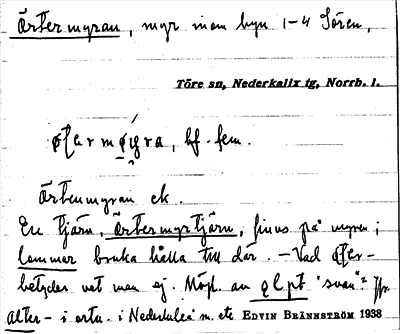 Ärtermyran, myr inom byn 1-4 Sören,
Töre sn, Nederkalix tg, Norrb. l.
bf. fem.
Ärtenmyran ek.
En tjärn, Ärtermyrtjärn, finns på myren;
lommar bruka hålla till där. – Vad
betyder vet man ej. Möjl. av "svan"?
alter- i ortn. i Nederkulea m. etc EDVIN BRÄNNSTRÖM 1938